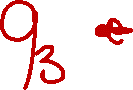 93 e